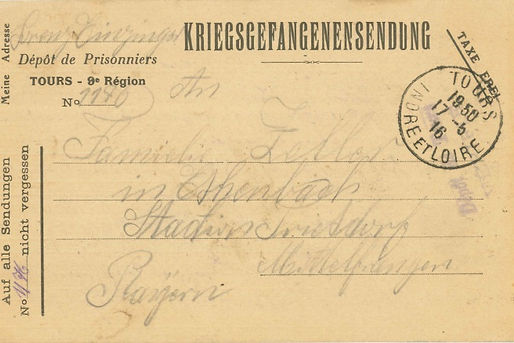 Meine Adresse
KRIEGSGEFANGENENSENDUNG
TAXE FREI
Dépôt de Prisonniers
TOURS - 9e Région
No 1140
An
Familie Zeller
in
Station Triesdorf
Mittelfranken
Bayern
TOURS
1950
17 - 5
16
INDRE ET LOIRE
Auf alle Sendungen
No 1140 nicht vergessen